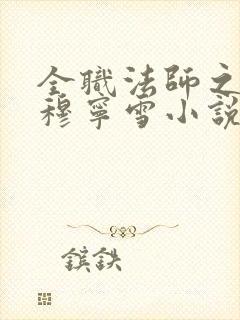 全職法師之
穆寧雪小說
鑌鉄